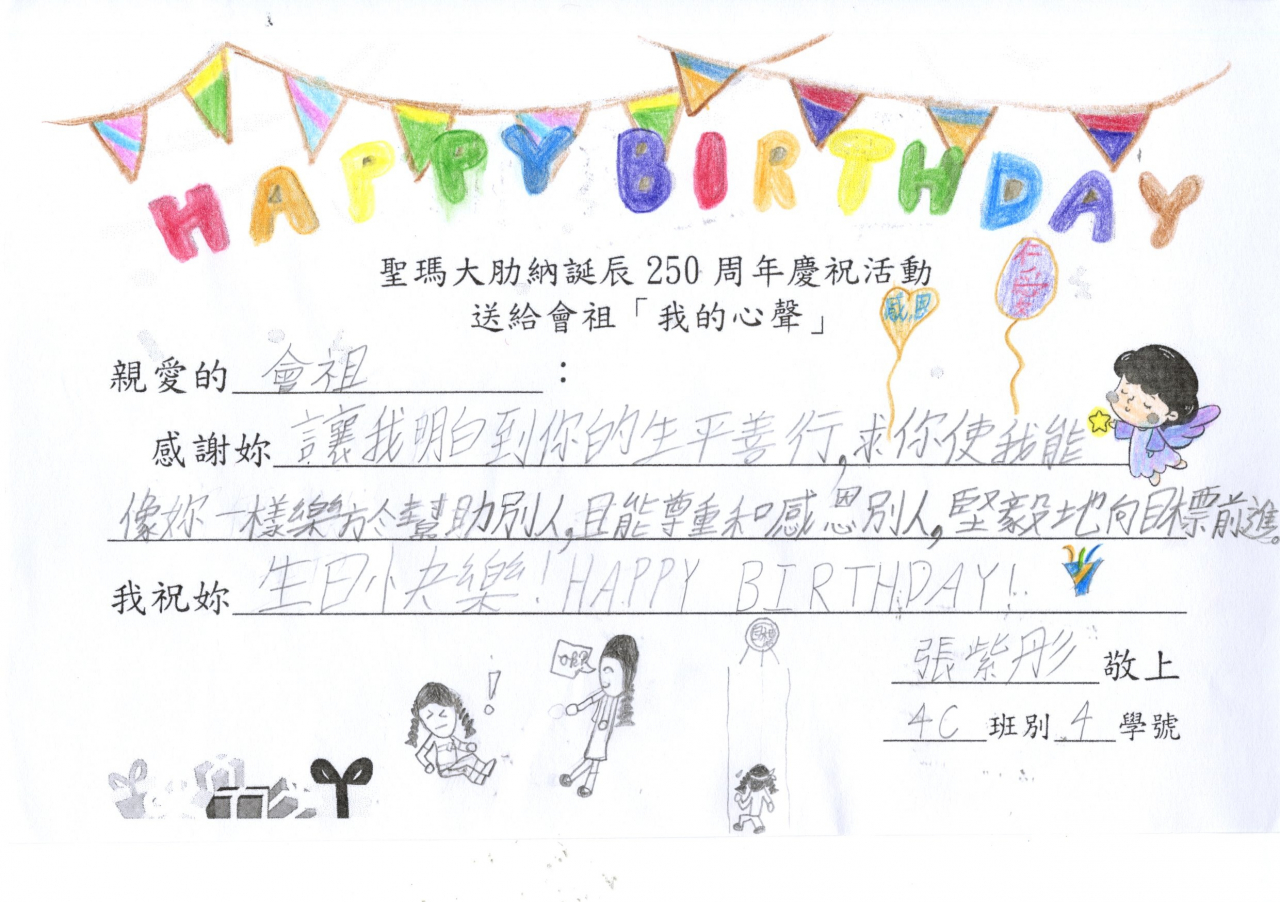 HAPPY BIRTHDAY
聖瑪大肋納誕辰 250 周年慶祝活動
送給會祖「我的心聲」
感恩
仁愛
親愛的 會祖 ：
感謝妳 讓我明白到你的生平善行,求你使我能
像妳一樣樂於幫助別人,且能尊重和感恩別人,堅毅地向目標前進。
我祝妳 生日快樂!HAPPY BIRTHDAY!
張紫彤 敬上
4C 班別 4 學號
!
目標